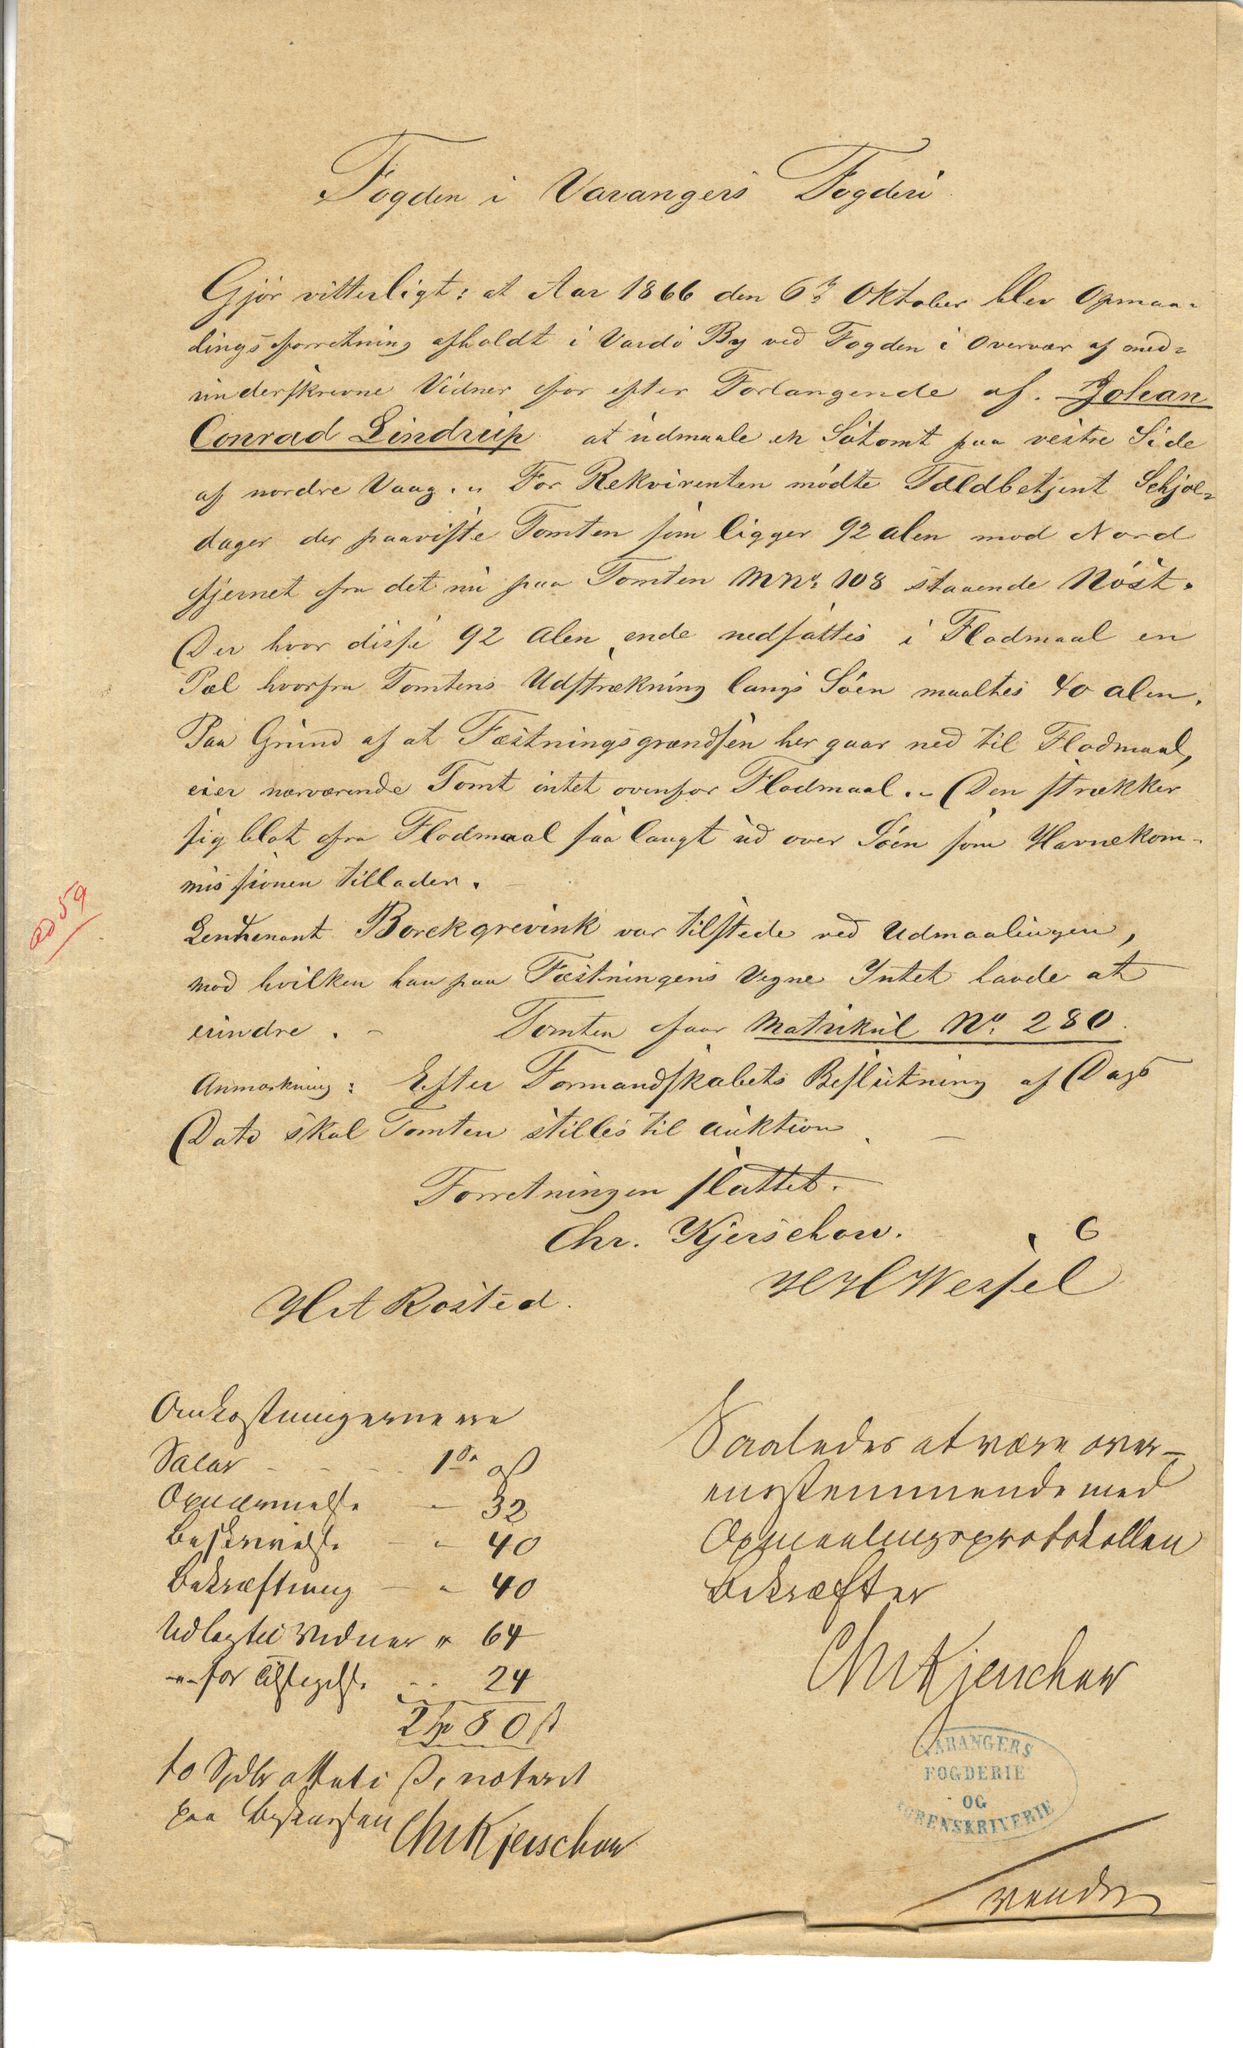 Fogden i Varangers Fogderi
Gjør vitterligt: at Aar 1866 den 6te Oktober blev Opmaa-
lingsforretning afholdt i Vardö By ved Fogden i Overvær af med-
underskrevne Vidner for efter Forlangende af Johan
Conrad Lindrup at udmaale en Sötomt paa vestre Side
af nordre Vaag. For Rekvirenten mödte Toldbetjent Schjöl-
dager der paaviste Tomten som ligger 92 alen mod Nord
fjernet fra det nu paa Tomten M No 108 staaende Nöst.
Der hvor disse 92 Alen ende nedsattes i Flodmaal en
Pæl hvorfra Tomtens Udstrækning langs Söen maaltes 40 alen.
Paa Grund af at Fæstningsgrændsen her gaar ned til Flodmaal,
eier nærværende Tomt intet ovenfor Flodmaal. - Den strækker
sig blot fra Flodmaal saa langt ud over Söen som Havnekom-
missionen tillader.
Leutnant Borchgrevink var tilstede ved Udmaalingen,
mod hvilken han paa Fæstningens Vegne Intet havde at
erindre. - Tomten faar Matrikul No. 280.
Anmærkning: Efter Formandskabets Beslutning af Dags
Dato skal Tomten stilles til Auktion.
Forretningen sluttet.
Chr. Kjerschow.
H A Rosted. H H Wessel
59
Omkostningerne ere
Salær 1 Sp
Opnævnelse " 32
Beskrivelse " 40
Bekræftning " 40
Udlagt til Vidner " 64
"-for 24
2 Sp 80 ß
to Spdlr otteti ß, noteret
paa Chr Kjerschow
Saaledes at være over-
ensstemmende med
Opmaalingsprotokollen
bekræfter
Chr Kjerschow
VARANGERS
FOGDERIE
OG
SORENSKRIVERIE
vende